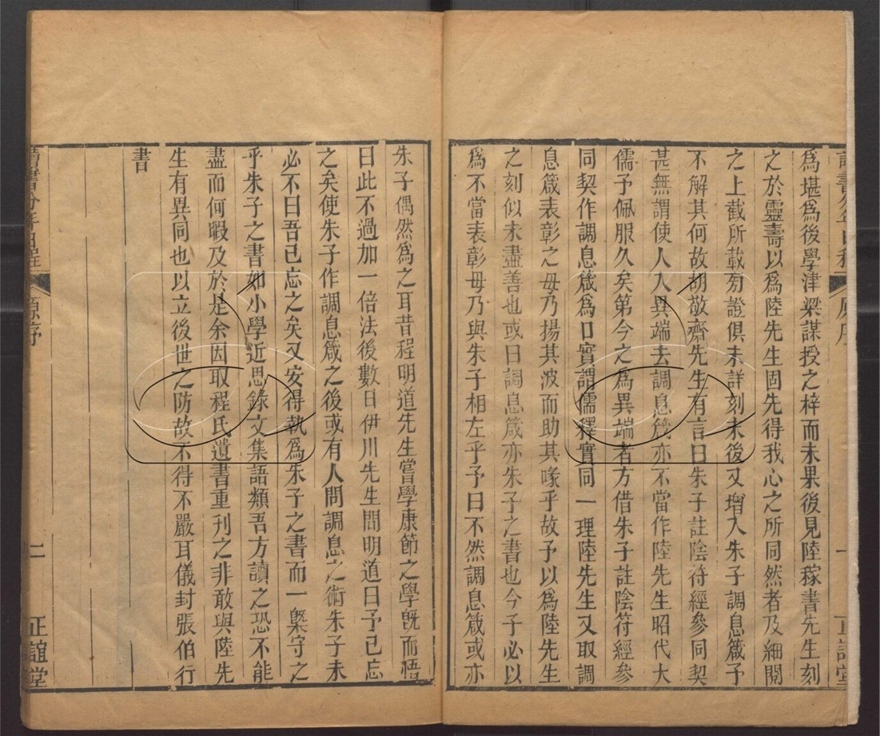 爲堪爲後學津梁謀授之梓而未果後見陸稼書先生刻
之於靈壽以爲陸先生固先得我心之所同然者及細閱
之上截所載勿證俱未詳刻末後又增入朱子調息箴予
不解其何故胡敬齋先生有言曰朱子註陰符經參同契
甚無謂使人入異端去調息箴亦不當作陸先生昭代大
儒予佩服久矣第今之爲異端者方借朱子註陰符經參
同契作調息箴爲口實謂儒釋實同一理陸先生又取調
息箴表彰之毋乃揚其波而助其喙乎故予以爲陸先生
之刻似未盡善也或曰調息箴亦朱子之書也今子必以
爲不當表彰毋乃與朱子相左乎予曰不然調息箴或亦
朱子偶然爲之耳昔程明道先生嘗學康節之學旣而悟
曰此不過加一倍法後數日伊川先生問明道曰予已忘
之矣使朱子作調息箴之後或有人問調息之術朱子未
必不曰吾已忘之矣又安得執爲朱子之書而一槩守之
乎朱子之書如小學近思錄文集語類吾方讀之恐不能
盡而何暇及於是余因取程氏遺書重刊之非敢與陸先
生有異同也以立後世之防故不得不嚴耳儀封張伯行
書
讀書分年日程
原序
二
正誼堂